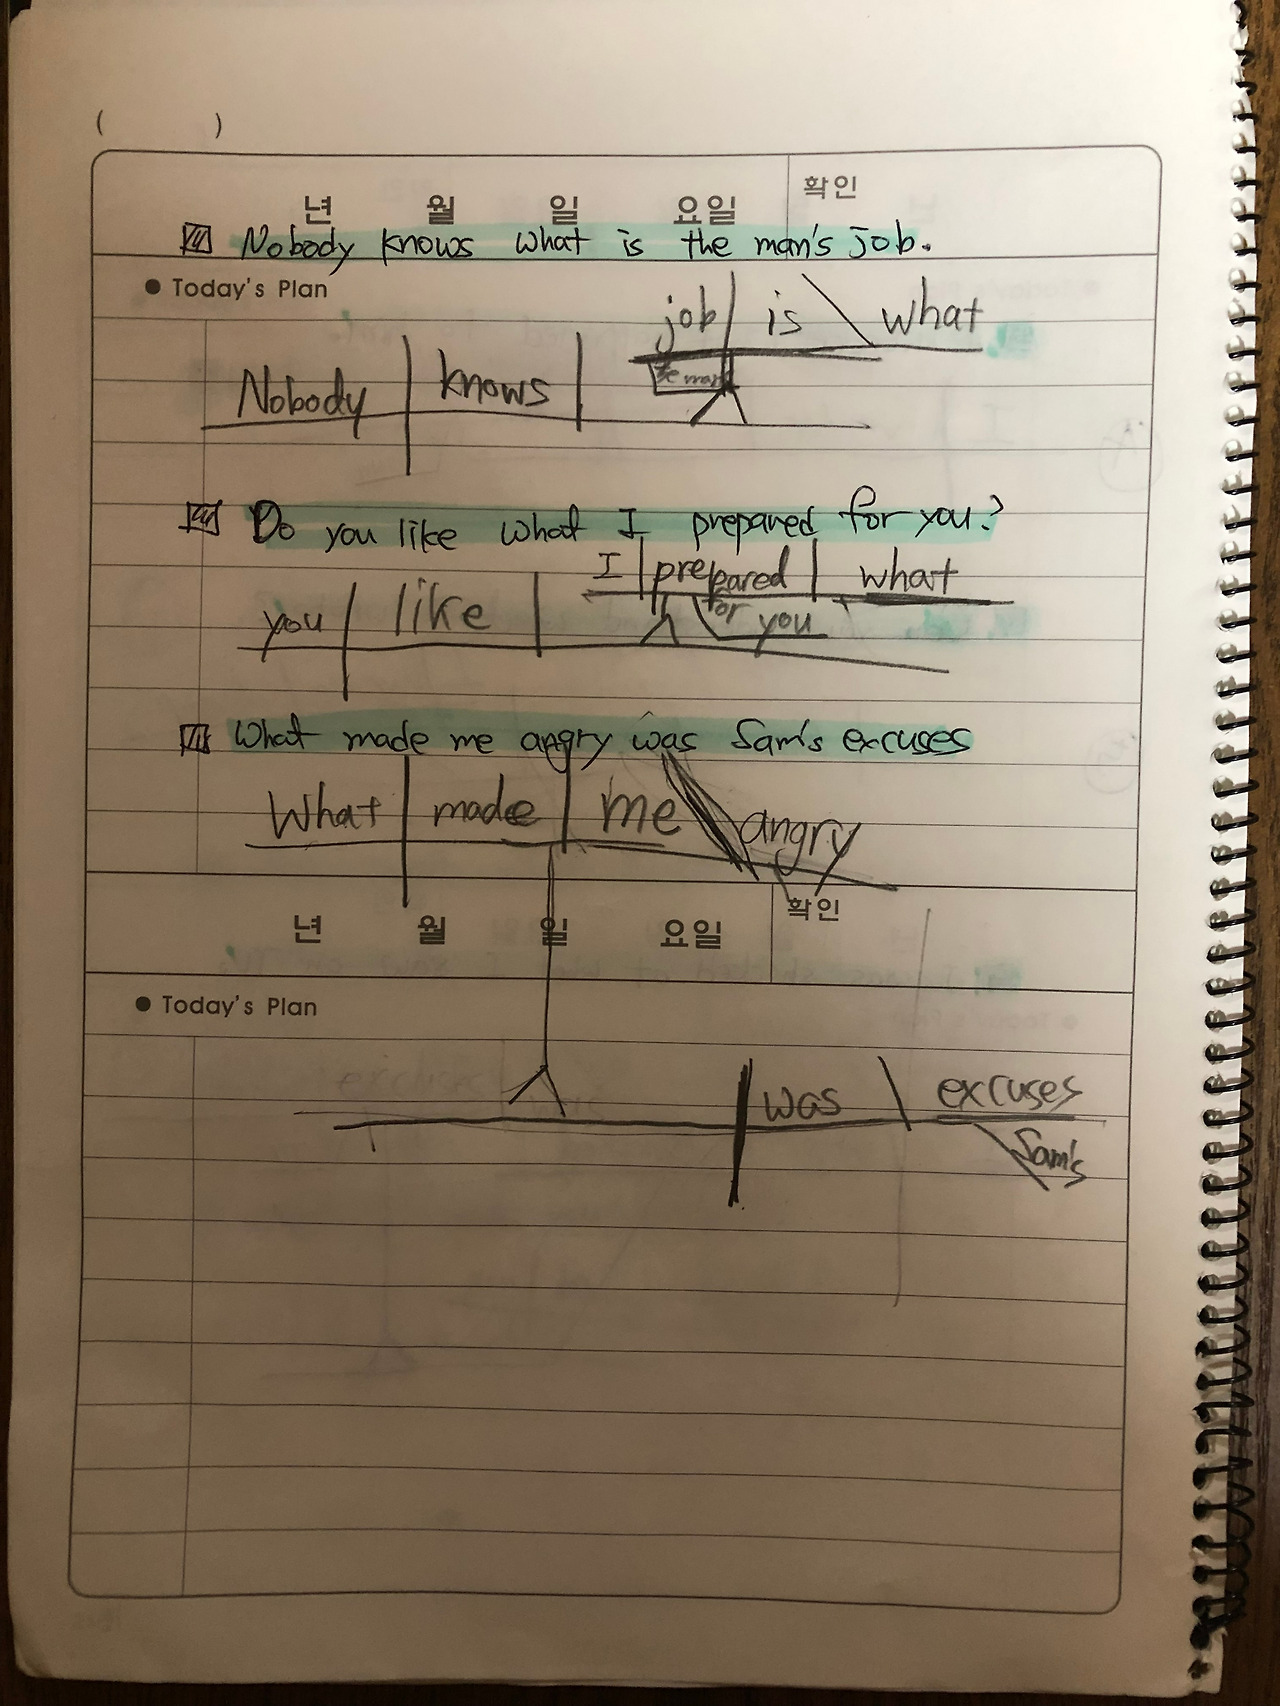 ( )
년 월 일 요일 확인
Nobody knows what is the man's job.
● Today's Plan
job is what
Nobody knows
Do you like what I prepared for you?
I prepared what
you like for you
What made me angry was Sam's excuses
What made me angry
년 월 일 요일 확인
● Today's Plan
was excuses
Sam's